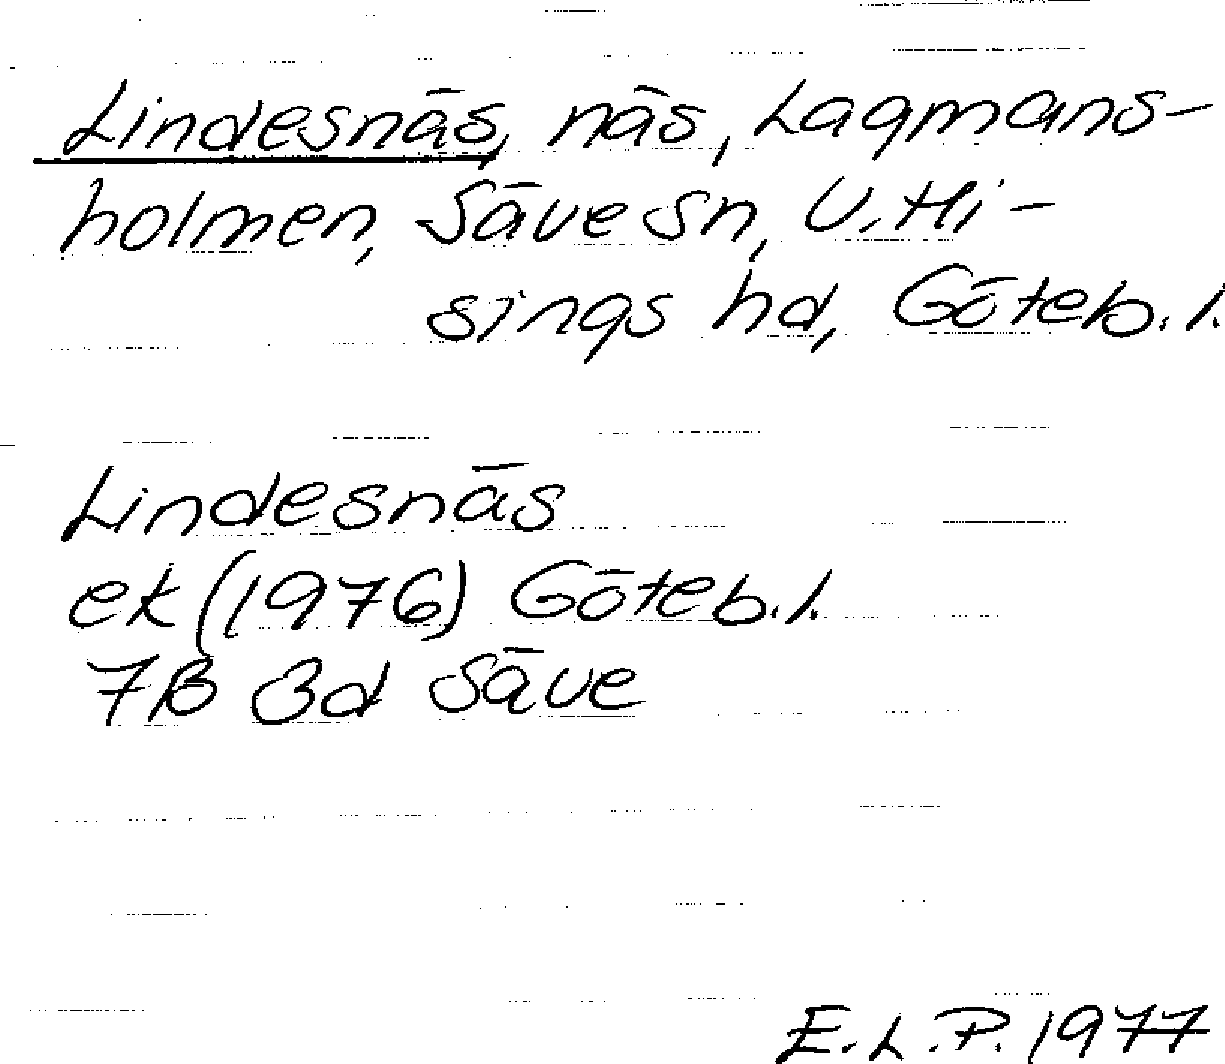 Lindesnäs, näs, Lagmans-
holmen, Säve sn, V. Hi-
sings hd, Göteb. l.
Lindesnäs
ek (1976) Göteb. l.
7B 3d Säve
E.L.P. 1977